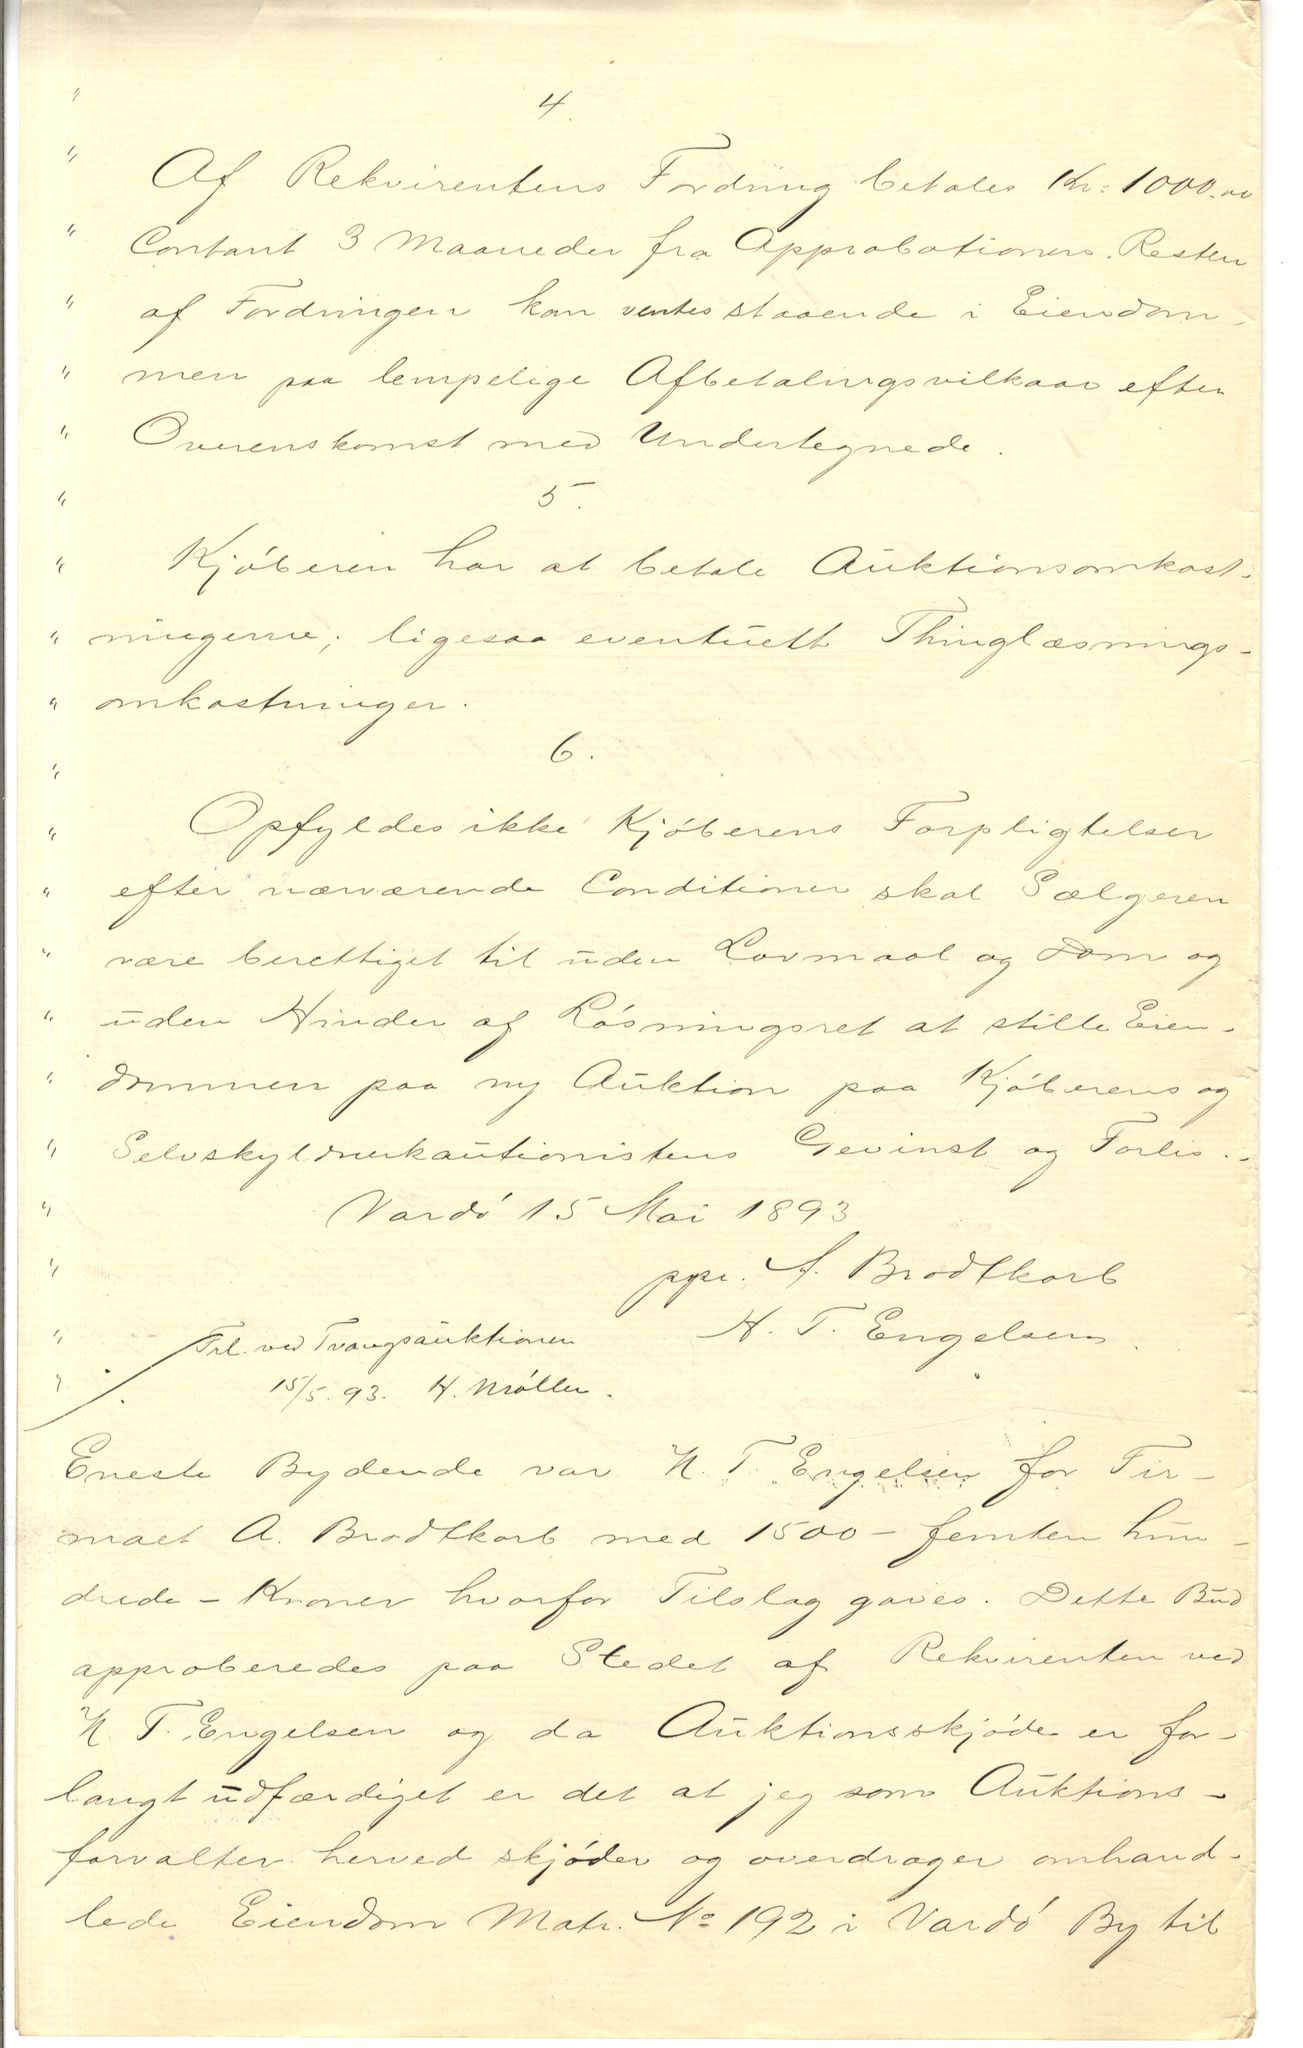 " 4.
" Af Rekvirentens Fordring betales Kr: 1000.00
" Contant 3 Maaneder fra Approbationen. Resten
" af Fordringen kan ventes staaende i Eiendom-
" men paa lempelige Afbetalingsvilkaar efter
" Overenskomst med Undertegnede.
" 5.
" Kjøberen har at betale Auktionsomkost-
" ningerne; ligesaa eventuelt Thinglæsnings-
" omkostninger.
" 6.
" Opfyldes ikke Kjøberens Forpligtelser
" efter nærværende Conditioner skal Sælgeren
" være berettiget til uden Lovmaal og Dom og
" uden Hinder af Løsningsret at stille Eien-
" dommen paa ny Auktion paa Kjøberens og
" Selvskyldnerkautionistens Gevinst og Forlis.
" Vardø 15 Mai 1893
" ppr. A. Brodtkorb
" H. T. Engelsen
Frl. ved Tvangsauktionen
15/5. 93. H. Møller.
Eneste Bydende var N. T. Engelsen for Fir-
maet A. Brodtkorb med 1500 - femten hun-
drede - Kroner hvorfor Tilslag gaves. Dette Bud
approberedes paa Stedet af Rekvirenten ved
N. T. Engelsen og da Auktionsskjøde er for-
langt udfærdiget er det at jeg som Auktions-
forvalter herved skjøder og overdrager omhand-
lede Eiendom Matr. No 192 i Vardø By til